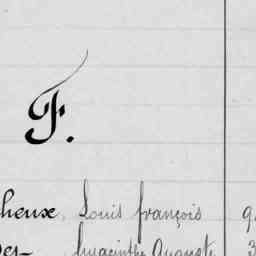 F.
heux, Louis françois 9
Hyacinthe Auguste 3